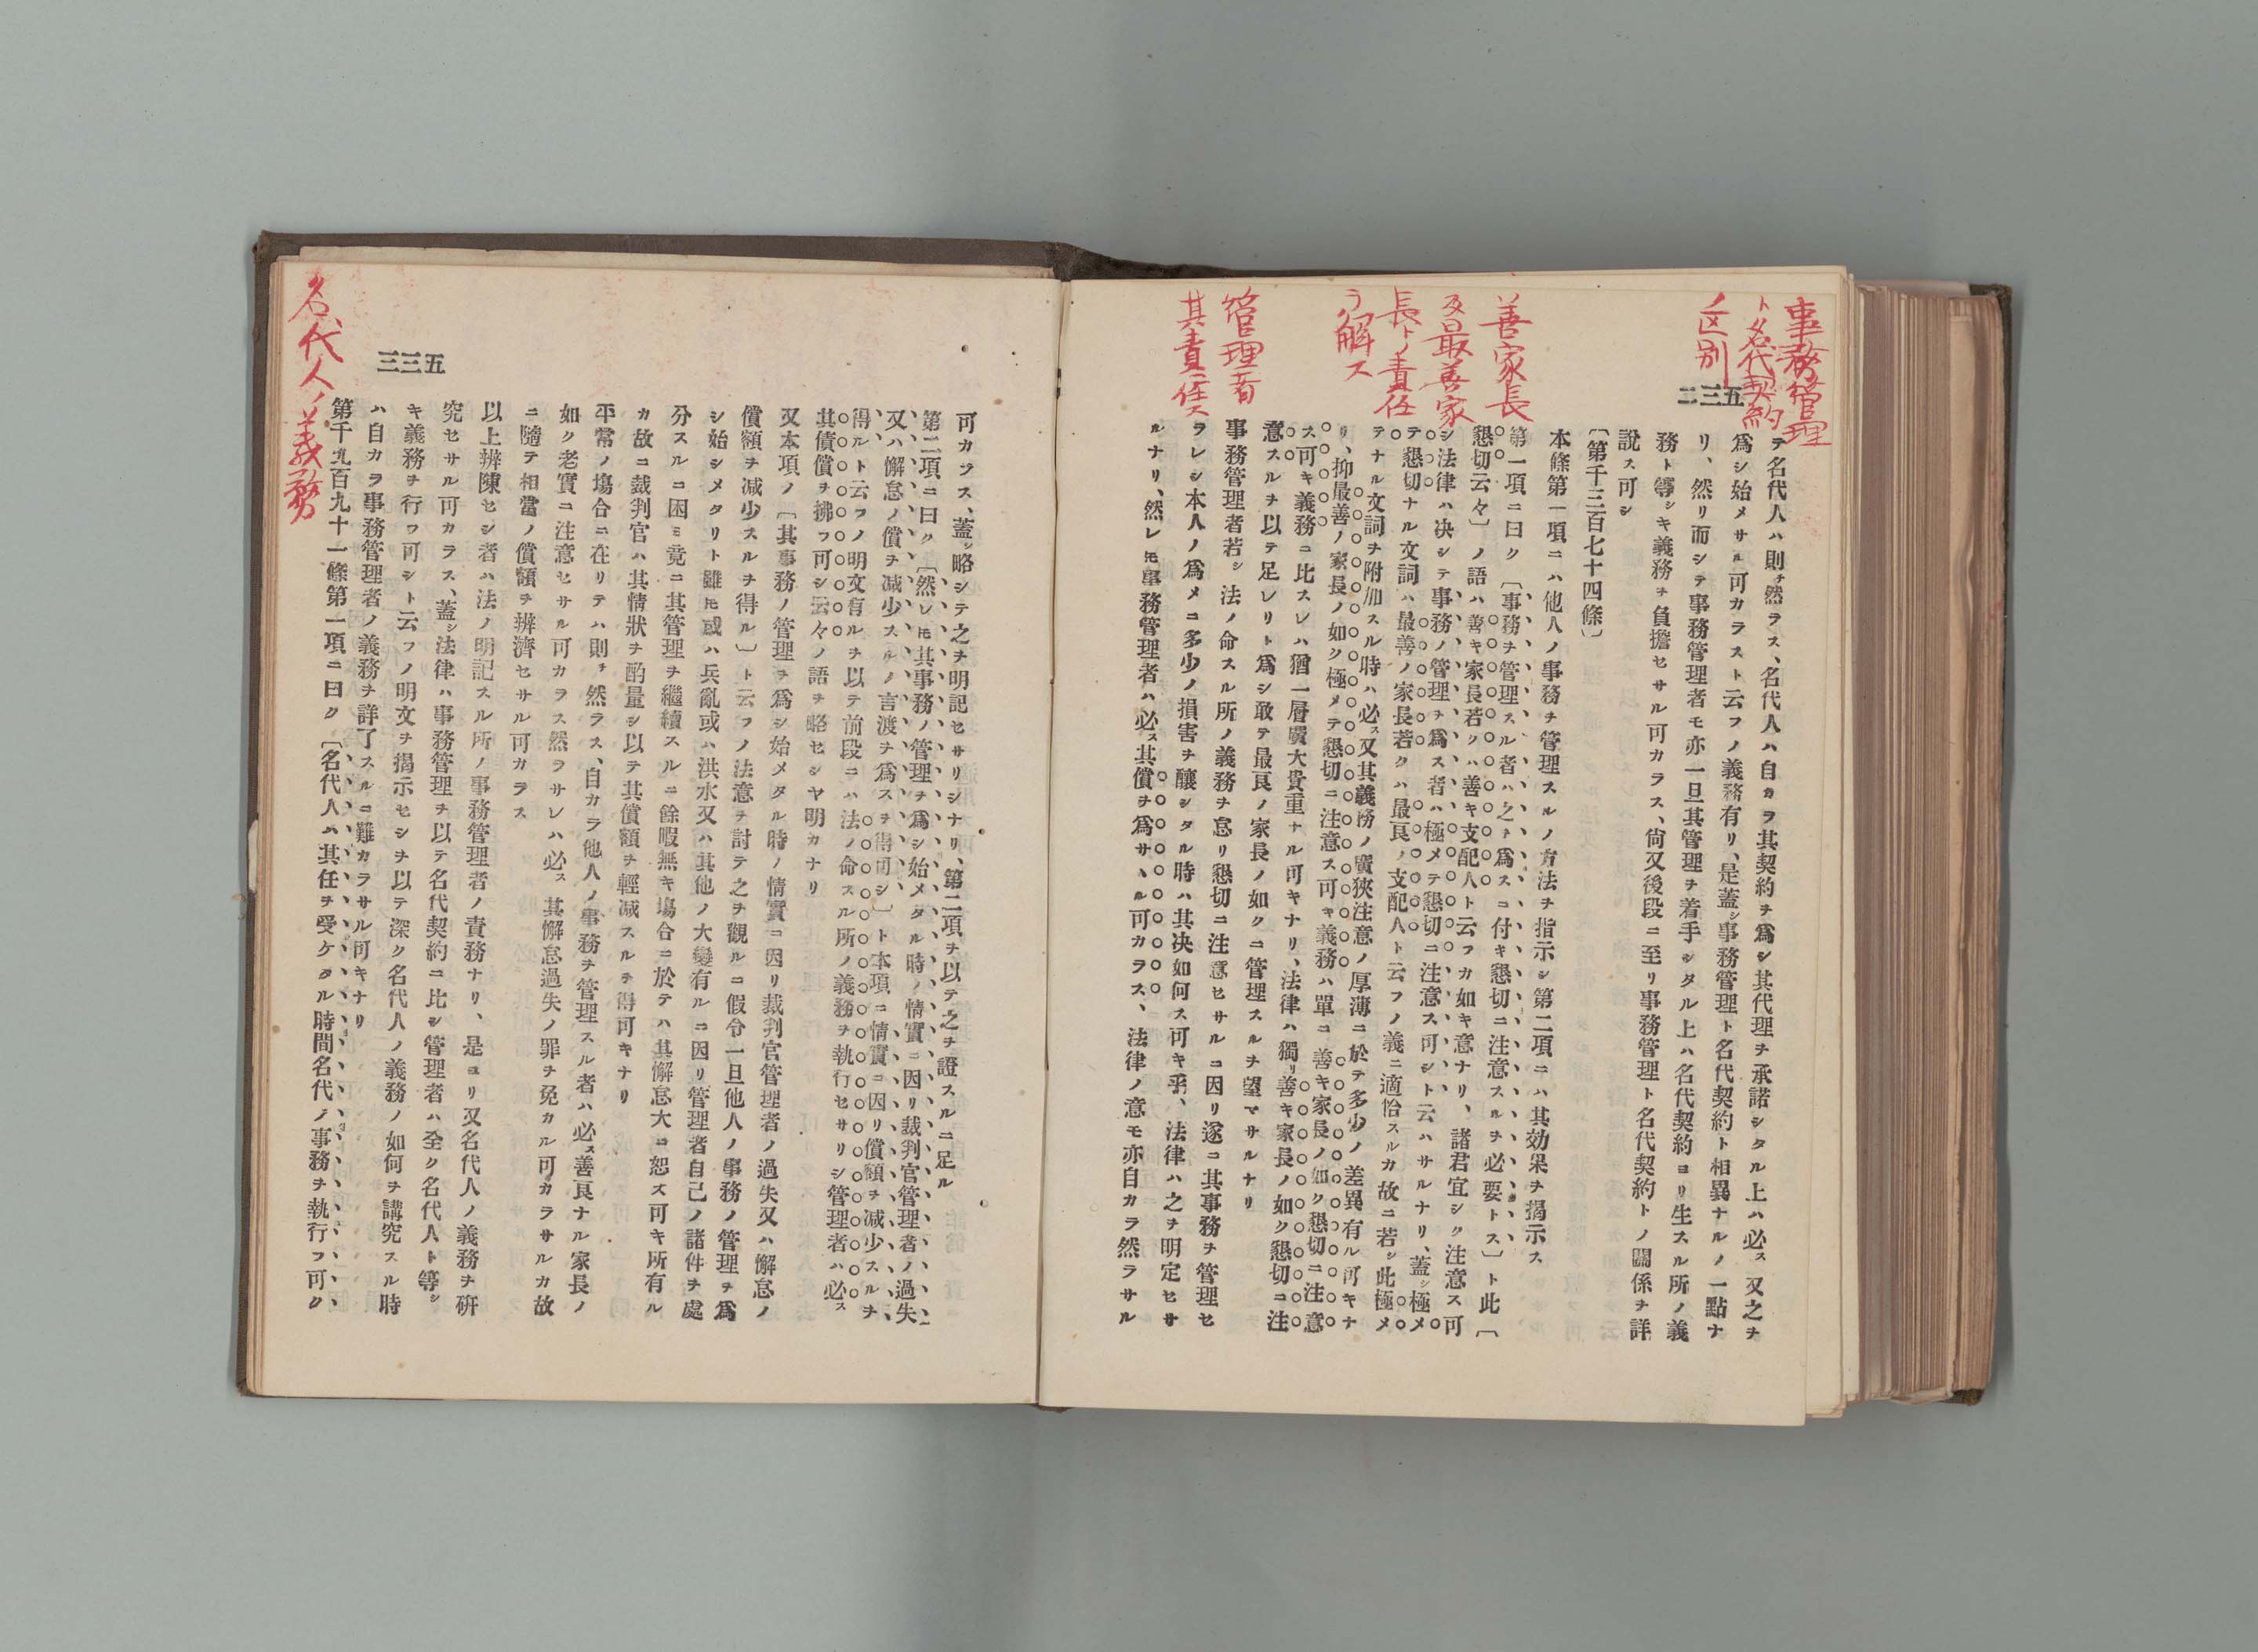 事務管理
ト名代契約
ノ区別
五三二
テ名代人ハ則チ然ラス、名代人ハ自カラ其契約ヲ爲シ其代理ヲ承諾シタル上ハ必ス又之ヲ
爲シ始メサル可カラスト云フノ義務有リ、是蓋シ事務管理ト名代契約ト相異ナルノ一點ナ
リ、然リ而シテ事務管理者モ亦一旦其管理ヲ着手シタル上ハ名代契約ヨリ生スル所ノ義
務ト等シキ義務ヲ負擔セサル可カラス、尙又後段ニ至リ事務管理ト名代契約トノ關係ヲ詳
說ス可シ
〔第千三百七十四條〕
本條第一項ニハ他人ノ事務ヲ管理スルノ方法ヲ指示シ第二項ニハ其効果ヲ揭示ス
善家長
及最善家
長トノ責任
ヲ解ス
第一項ニ曰ク〔事務ヲ管理スル者ハ之ヲ爲スニ付キ懇切ニ注意スルヲ必要トス〕ト此〔
懇切云々〕ノ語ハ善キ家長若クハ善キ支配人ト云フカ如キ意ナリ、諸君宜シク注意ス可
シ法律ハ决シテ事務ノ管理ヲ爲ス者ハ極メテ懇切ニ注意ス可シト云ハサルナリ、蓋シ極メ
テ懇切ナル文詞ハ最善ノ家長若クハ最良ノ支配人ト云フノ義ニ適恰スルカ故ニ若シ此極メ
テナル文詞ヲ附加スル時ハ必ス又其義務ノ廣狹注意ノ厚薄ニ於テ多少ノ差異有ル可キナ
リ、抑最善ノ家長ノ如ク極メテ懇切ニ注意ス可キ義務ハ單ニ善キ家長ノ如ク懇切ニ注意
ス可キ義務ニ比スレハ猶一層廣大貴重ナル可キナリ、法律ハ獨リ善キ家長ノ如ク懇切ニ注
意スルヲ以テ足レリト爲シ敢テ最良ノ家長ノ如クニ管理スルヲ望マサルナリ
管理者
其責任ス
事務管理者若シ法ノ命スル所ノ義務ヲ怠リ懇切ニ注意セサルニ因リ遂ニ其事務ヲ管理セ
ラレシ本人ノ爲メニ多少ノ損害ヲ釀シタル時ハ其决如何ス可キ乎、法律ハ之ヲ明定セサ
ルナリ、然レ𪜈事務管理者ハ必ス其償ヲ爲サヽル可カラス、法律ノ意モ亦自カラ然ラサル
五三三
可カラス、蓋シ略シテ之ヲ明記セサリシナリ、第二項ヲ以テ之ヲ證スルニ足ル
第二項ニ曰ク〔然レ𪜈其事務ノ管理ヲ爲シ始メタル時ノ情實ニ因リ裁判官管理者ノ過失
又ハ懈怠ノ償ヲ減少スルノ言渡ヲ爲スヲ得可シ〕ト本項ニ情實ニ因リ償額ヲ減少スルヲ
得ルト云フノ明文有ルヲ以テ前段ニハ法ノ命スル所ノ義務ヲ執行セサリシ管理者ハ必ス
其債償ヲ拂フ可シ云々ノ語ヲ略セシヤ明カナリ
又本項ノ〔其事務ノ管理ヲ爲シ始メタル時ノ情實ニ因リ裁判官管理者ノ過失又ハ懈怠ノ
償額ヲ減少スルヲ得ル〕ト云フノ法意ヲ討テ之ヲ觀ルニ假令一旦他人ノ事務ノ管理ヲ爲
シ始シメタリト雖𪜈或ハ兵亂或ハ洪水又ハ其他ノ大變有ルニ因リ管理者自己ノ諸件ヲ處
分スルニ困ミ竟ニ其管理ヲ繼續スルニ餘暇無キ塲合ニ於テハ其懈怠大ニ恕ス可キ所有ル
カ故ニ裁判官ハ其情狀ヲ酌量シ以テ其償額ヲ輕減スルヲ得可キナリ
平常ノ塲合ニ在リテハ則チ然ラス、自カラ他人ノ事務ヲ管理スル者ハ必ス善良ナル家長ノ
如ク老實ニ注意セサル可カラス然ラサレハ必ス其懈怠過失ノ罪ヲ免カル可カラサルカ故
ニ隨テ相當ノ償額ヲ辨濟セサル可カラス
以上辨陳セシ者ハ法ノ明記スル所ノ事務管理者ノ責務ナリ、是ヨリ又名代人ノ義務ヲ硏
究セサル可カラス、蓋シ法律ハ事務管理ヲ以テ名代契約ニ比シ管理者ハ全ク名代人ト等シ
キ義務ヲ行フ可シト云フノ明文ヲ揭示セシヲ以テ深ク名代人ノ義務ノ如何ヲ講究スル時
ハ自カラ事務管理者ノ義務ヲ詳了スルニ難カラサル可キナリ
名代人ノ義務
第千九百九十一條第一項ニ曰ク〔名代人ハ其任ヲ受ケタル時間名代ノ事務ヲ執行フ可ク